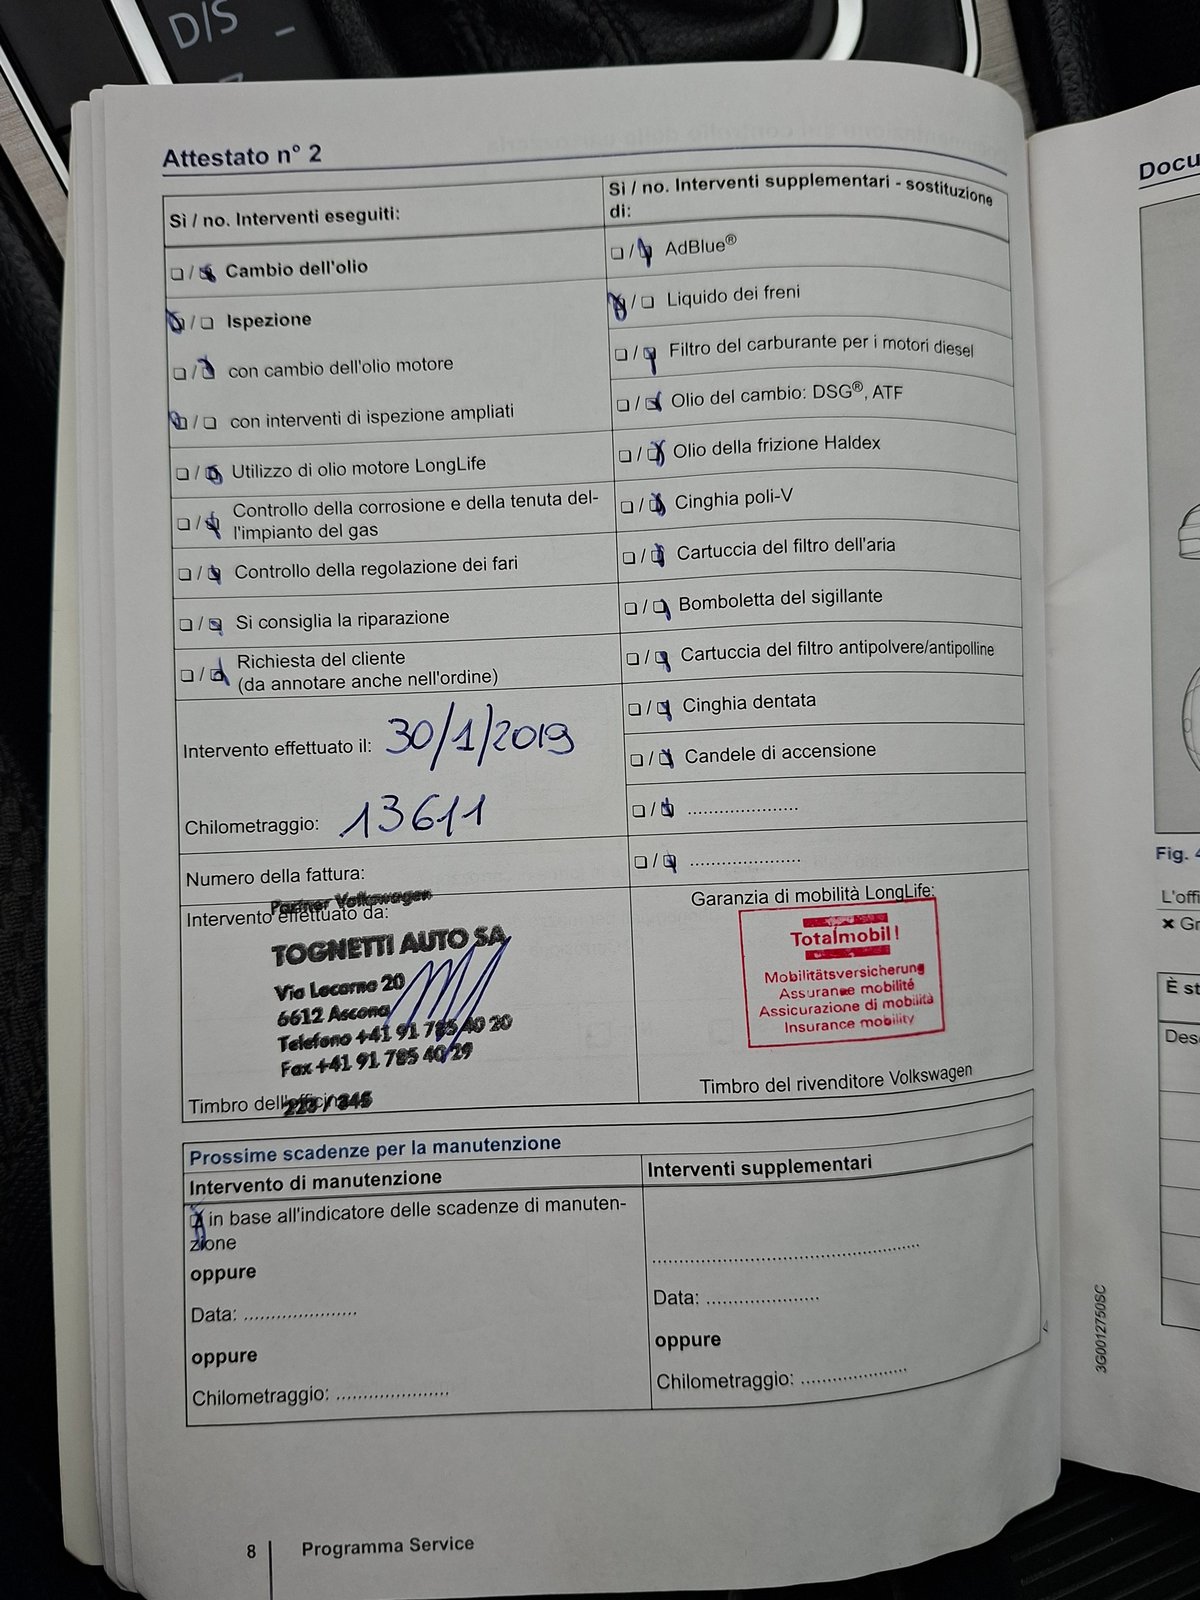 D/S
Attestato n° 2
Sì / no. Interventi eseguiti:
Cambio dell'olio
Ispezione
con cambio dell'olio motore
con interventi di ispezione ampliati
Utilizzo di olio motore LongLife
Controllo della corrosione e della tenuta del-
l'impianto del gas
Controllo della regolazione dei fari
Si consiglia la riparazione
Richiesta del cliente
(da annotare anche nell'ordine)
Intervento effettuato il: 30/1/2019
Chilometraggio: 13611
Numero della fattura:
Intervento effettuato da:
Partner Volkswagen
TOGNETTI AUTO SA
Via Locarno 20
6612 Ascona
Telefono +41 91 785 40 20
Fax +41 91 785 40 29
Timbro dell'officina
223 / 345
Sì / no. Interventi supplementari - sostituzione
di:
AdBlue®
Liquido dei freni
Filtro del carburante per i motori diesel
Olio del cambio: DSG®, ATF
Olio della frizione Haldex
Cinghia poli-V
Cartuccia del filtro dell'aria
Bomboletta del sigillante
Cartuccia del filtro antipolvere/antipolline
Cinghia dentata
Candele di accensione
.....................
.....................
Garanzia di mobilità LongLife:
Totalmobil!
Mobilitätsversicherung
Assurance mobilité
Assicurazione di mobilità
Insurance mobility
Timbro del rivenditore Volkswagen
Prossime scadenze per la manutenzione
Intervento di manutenzione
in base all'indicatore delle scadenze di manuten-
zione
oppure
Data: .....................
oppure
Chilometraggio: .....................
Interventi supplementari
..................................................
Data: .....................
oppure
Chilometraggio: ....................
8
Programma Service
3G0012750SC
Docu
Fig. 4
L'offi
Gr
È st
Des